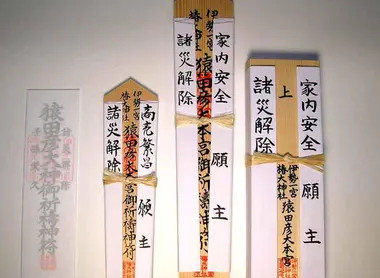 猿田彦大神御祈祷神符
商売繁昌
願主
伊勢一宮
椿大神社
猿田彦大本宮御祈祷神符
諸災解除
家内安全
願主
伊勢一宮
椿大神社
猿田彦大本宮御祈祷神符
諸災解除
家内安全
願主
上
伊勢一宮
椿大神社
猿田彦大本宮
諸災解除